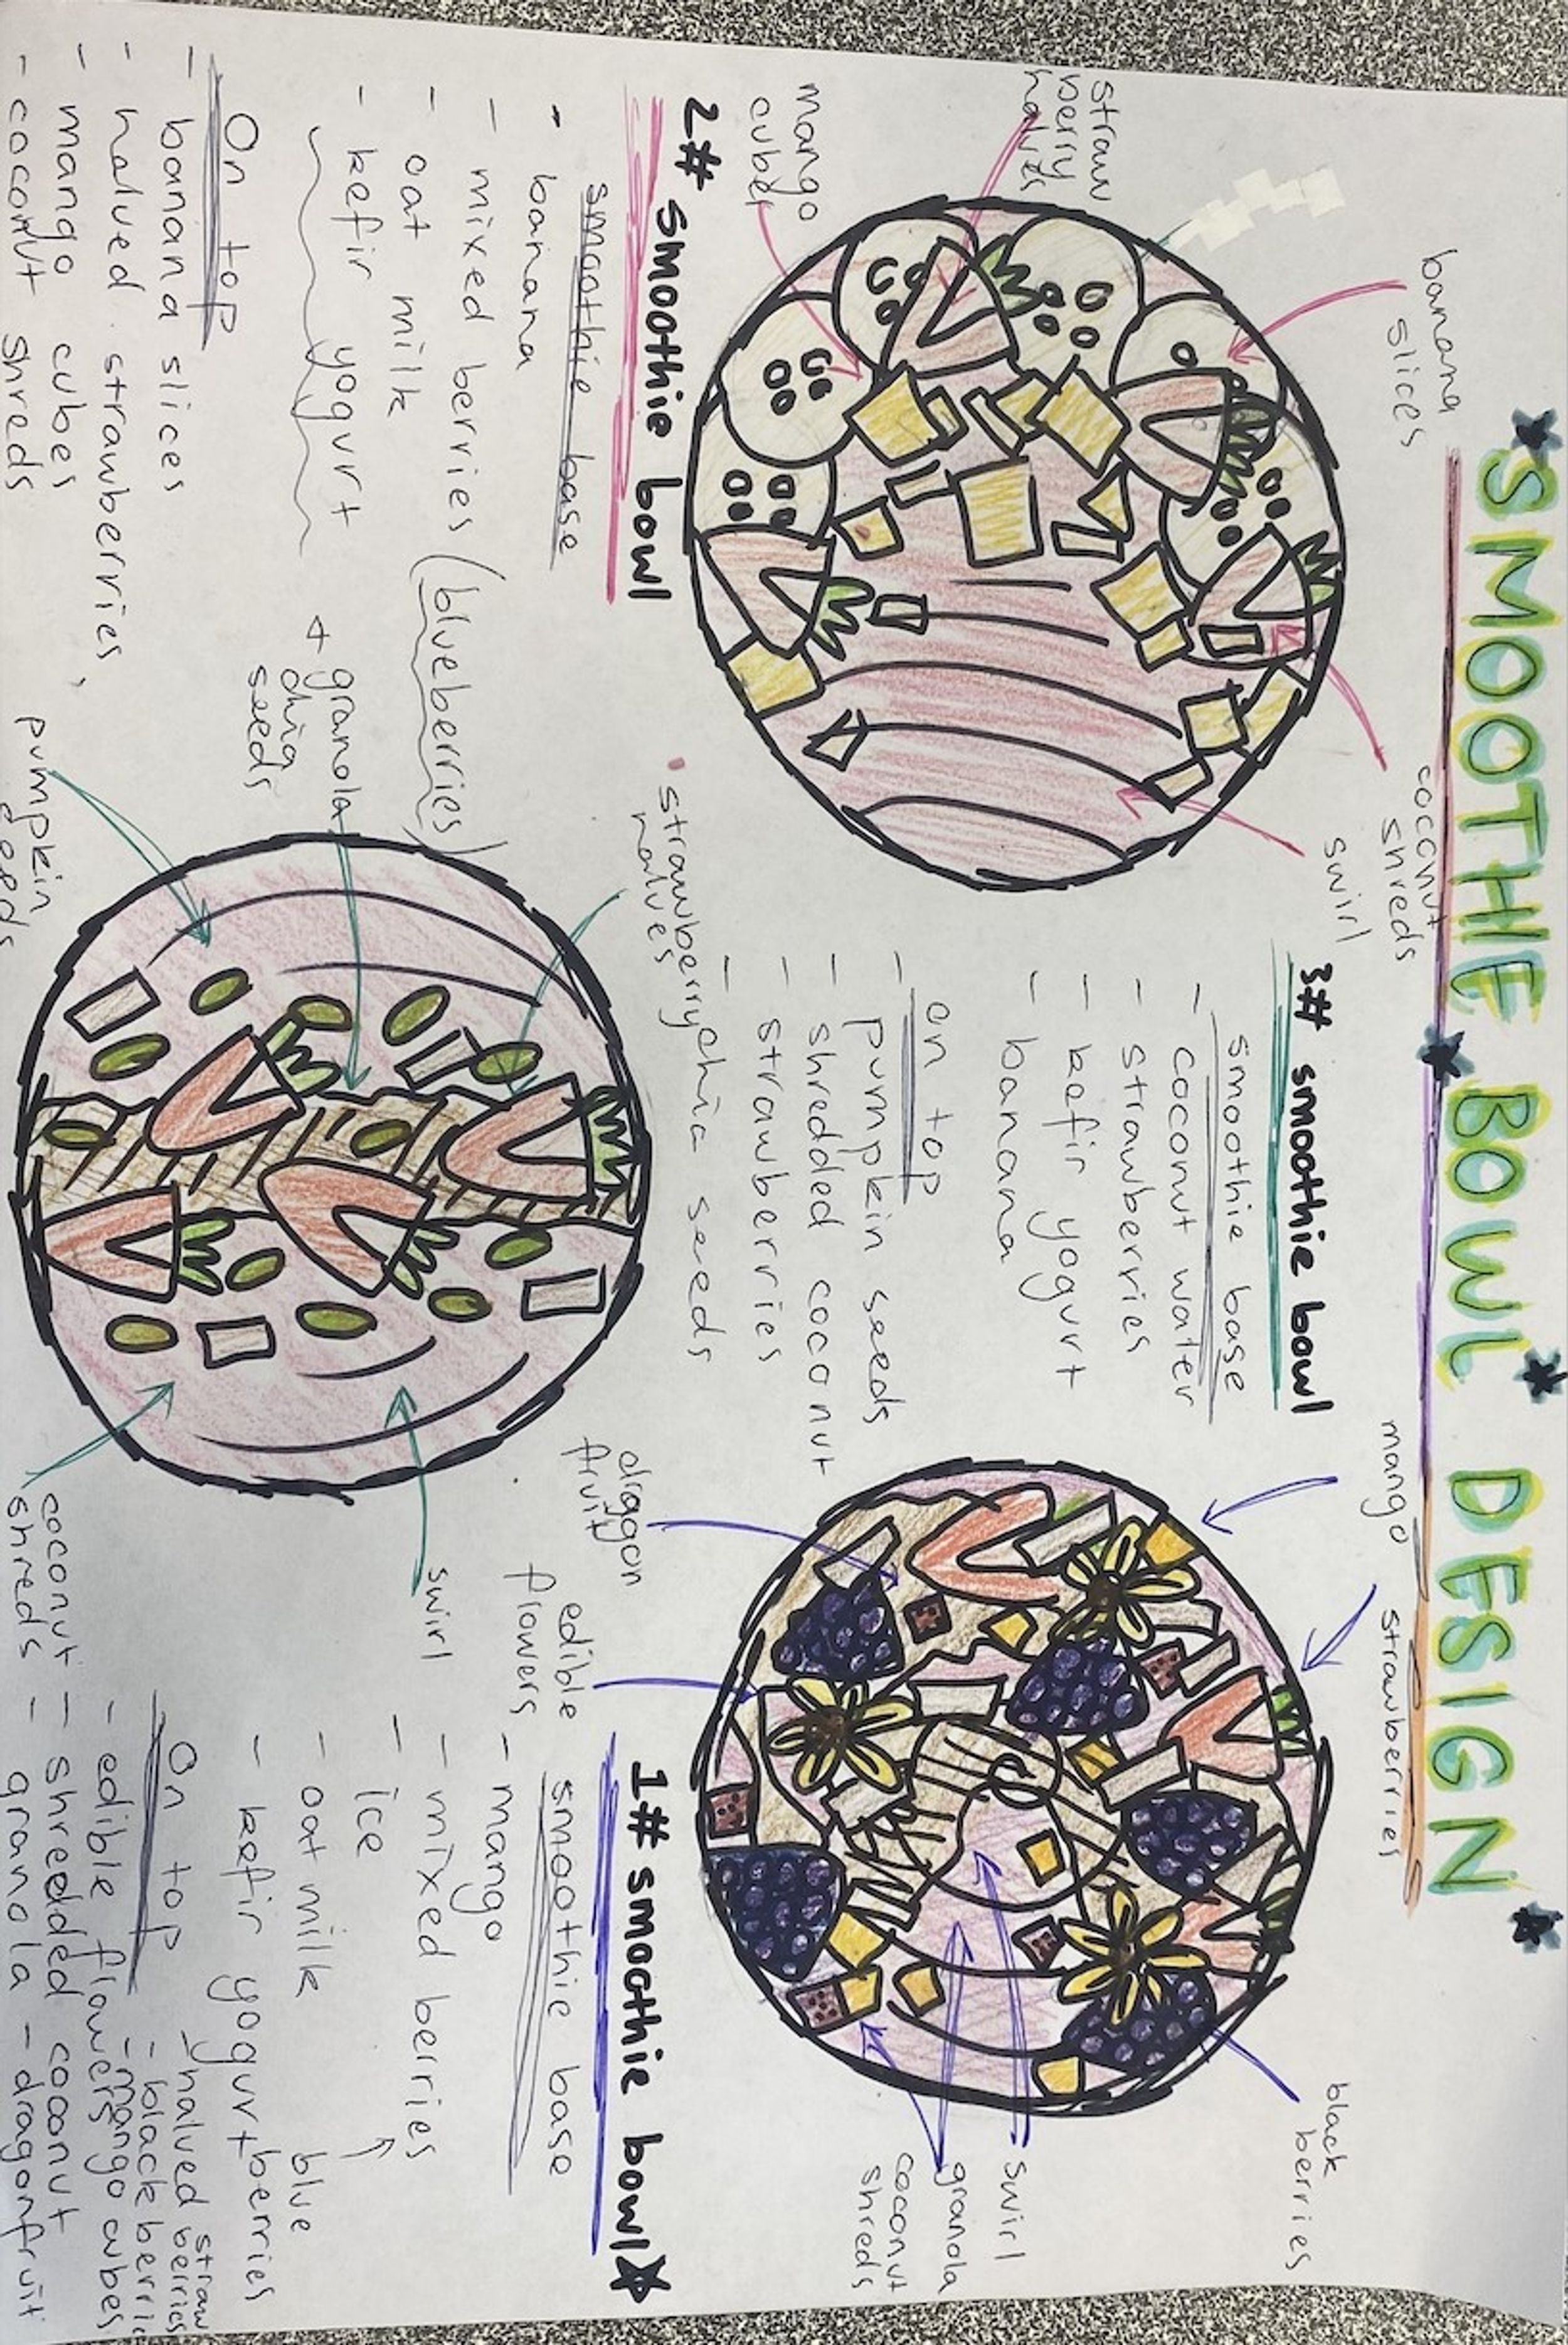 SMOOTHIE BOWL DESIGN
banana
slices
straw
berry
halves
mango
cubes
coconut
shreds
swirl
2# smoothie bowl
smoothie base
- banana
- mixed berries (blueberries)
- oat milk
- kefir yogurt
+ granola
chia
seeds
On top
- banana slices
- halved strawberries,
- mango cubes
- coconut shreds
3# smoothie bowl
smoothie base
- coconut water
- strawberries
- kefir yogurt
- banana
on top
- pumpkin seeds
- shredded coconut
- strawberries
- chia seeds
strawberry
halves
pumpkin
seeds
swirl
coconut
shreds
mango
strawberries
dragon
fruit
edible
flowers
black
berries
swirl
granola
coconut
shreds
1# smoothie bowl
smoothie base
- mango
- mixed berries
- ice
- oat milk
- kefir yogurt
blue
berries
On top
- edible flowers
- shredded cooonut
- granola
- halved straw
berries
- black berrie
- mango cubes
- dragonfruit